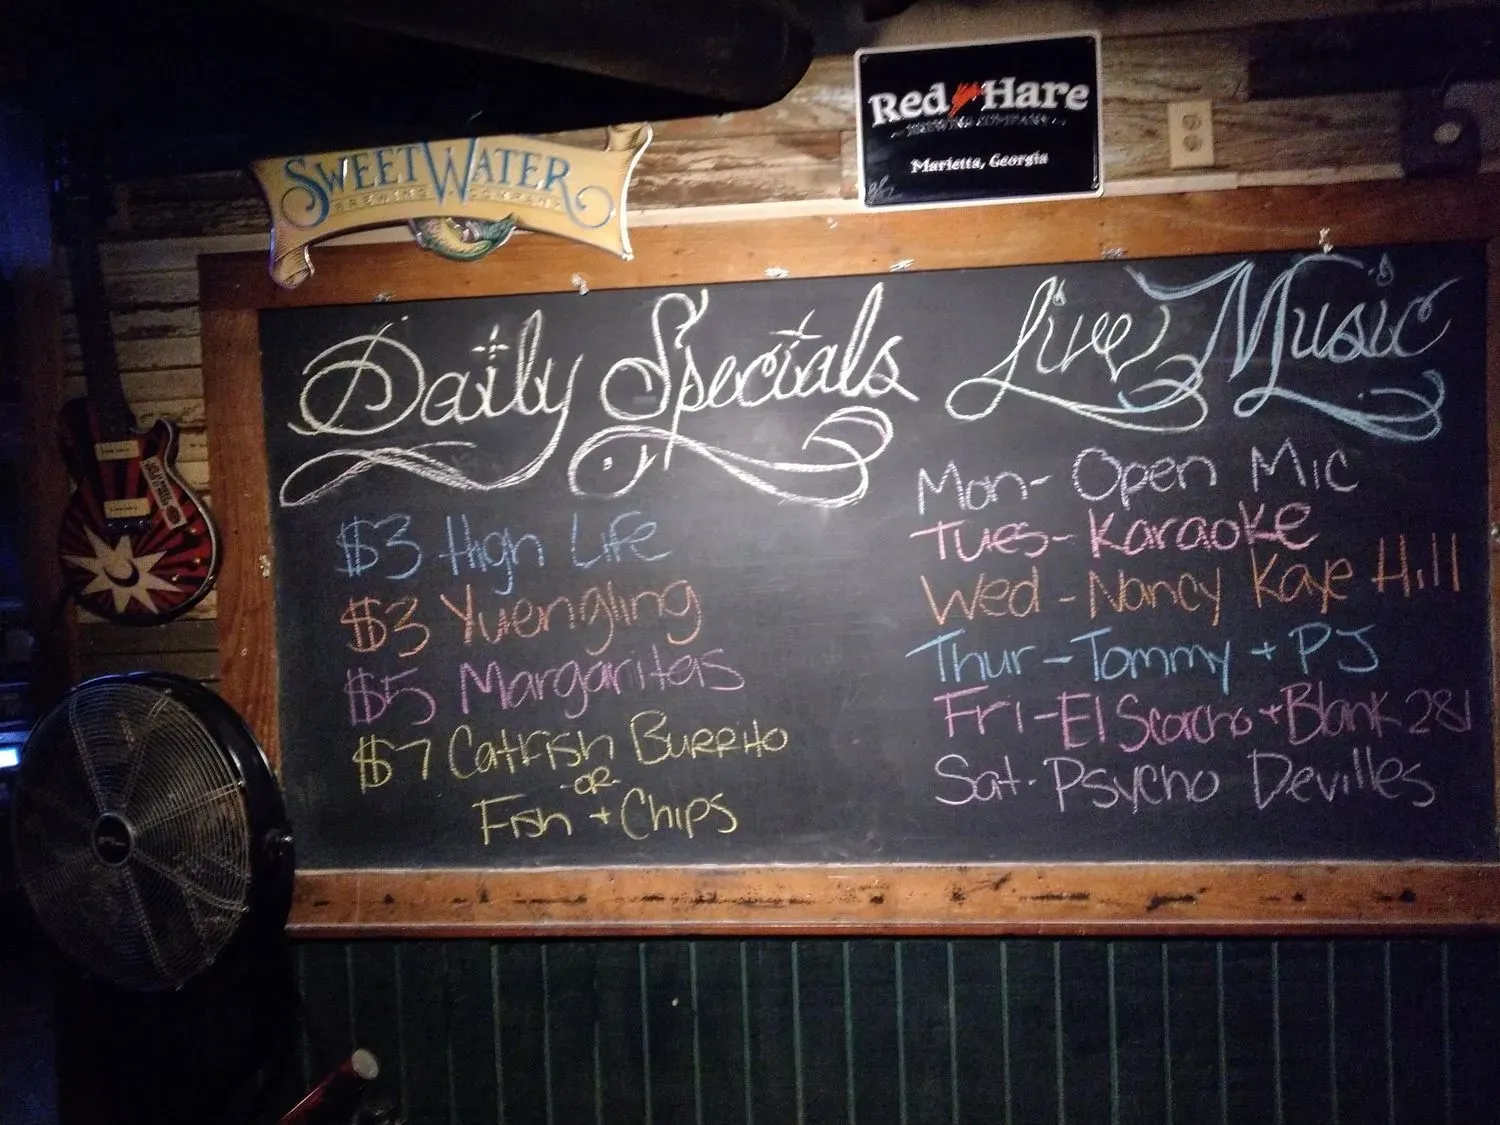 SWEETWATER
BREWING COMPANY
Red Hare
BREWING COMPANY
Marietta, Georgia
Daily Specials
$3 High Life
$3 Yuengling
$5 Margaritas
$7 Catfish Burrito
-OR-
Fish + Chips
Live Music
Mon- Open Mic
Tues- Karaoke
Wed - Nancy Kaye Hill
Thur - Tommy + PJ
Fri - El Scorcho + Blank 281
Sat- Psycho Devilles